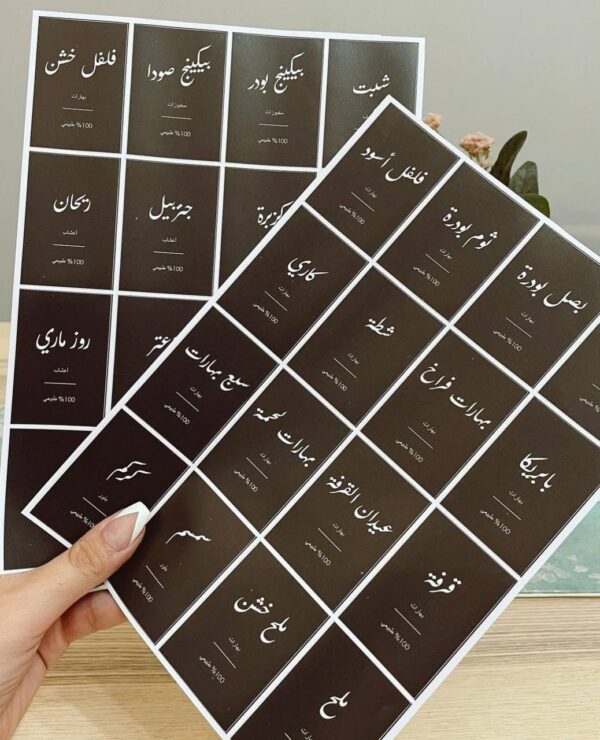 شبت
بيكينج بودر
مخبوزات
100% طبيعي
بيكينج صودا
مخبوزات
100% طبيعي
فلفل خشن
بهارات
100% طبيعي
كزبرة
جنزبيل
أعشاب
100% طبيعي
ريحان
أعشاب
100% طبيعي
عتر
روز ماري
أعشاب
100% طبيعي
بصل بودرة
بهارات
100% طبيعي
ثوم بودرة
بهارات
100% طبيعي
فلفل أسود
بهارات
100% طبيعي
بابريكا
بهارات
100% طبيعي
بهارات فراخ
بهارات
100% طبيعي
شطة
بهارات
100% طبيعي
كاري
بهارات
100% طبيعي
قرفة
بهارات
100% طبيعي
عيدان القرفة
بهارات
100% طبيعي
بهارات لحمة
بهارات
100% طبيعي
سبع بهارات
بهارات
100% طبيعي
ملح
بهارات
100% طبيعي
ملح خشن
بهارات
100% طبيعي
سمسم
بذور
100% طبيعي
كركم
بذور